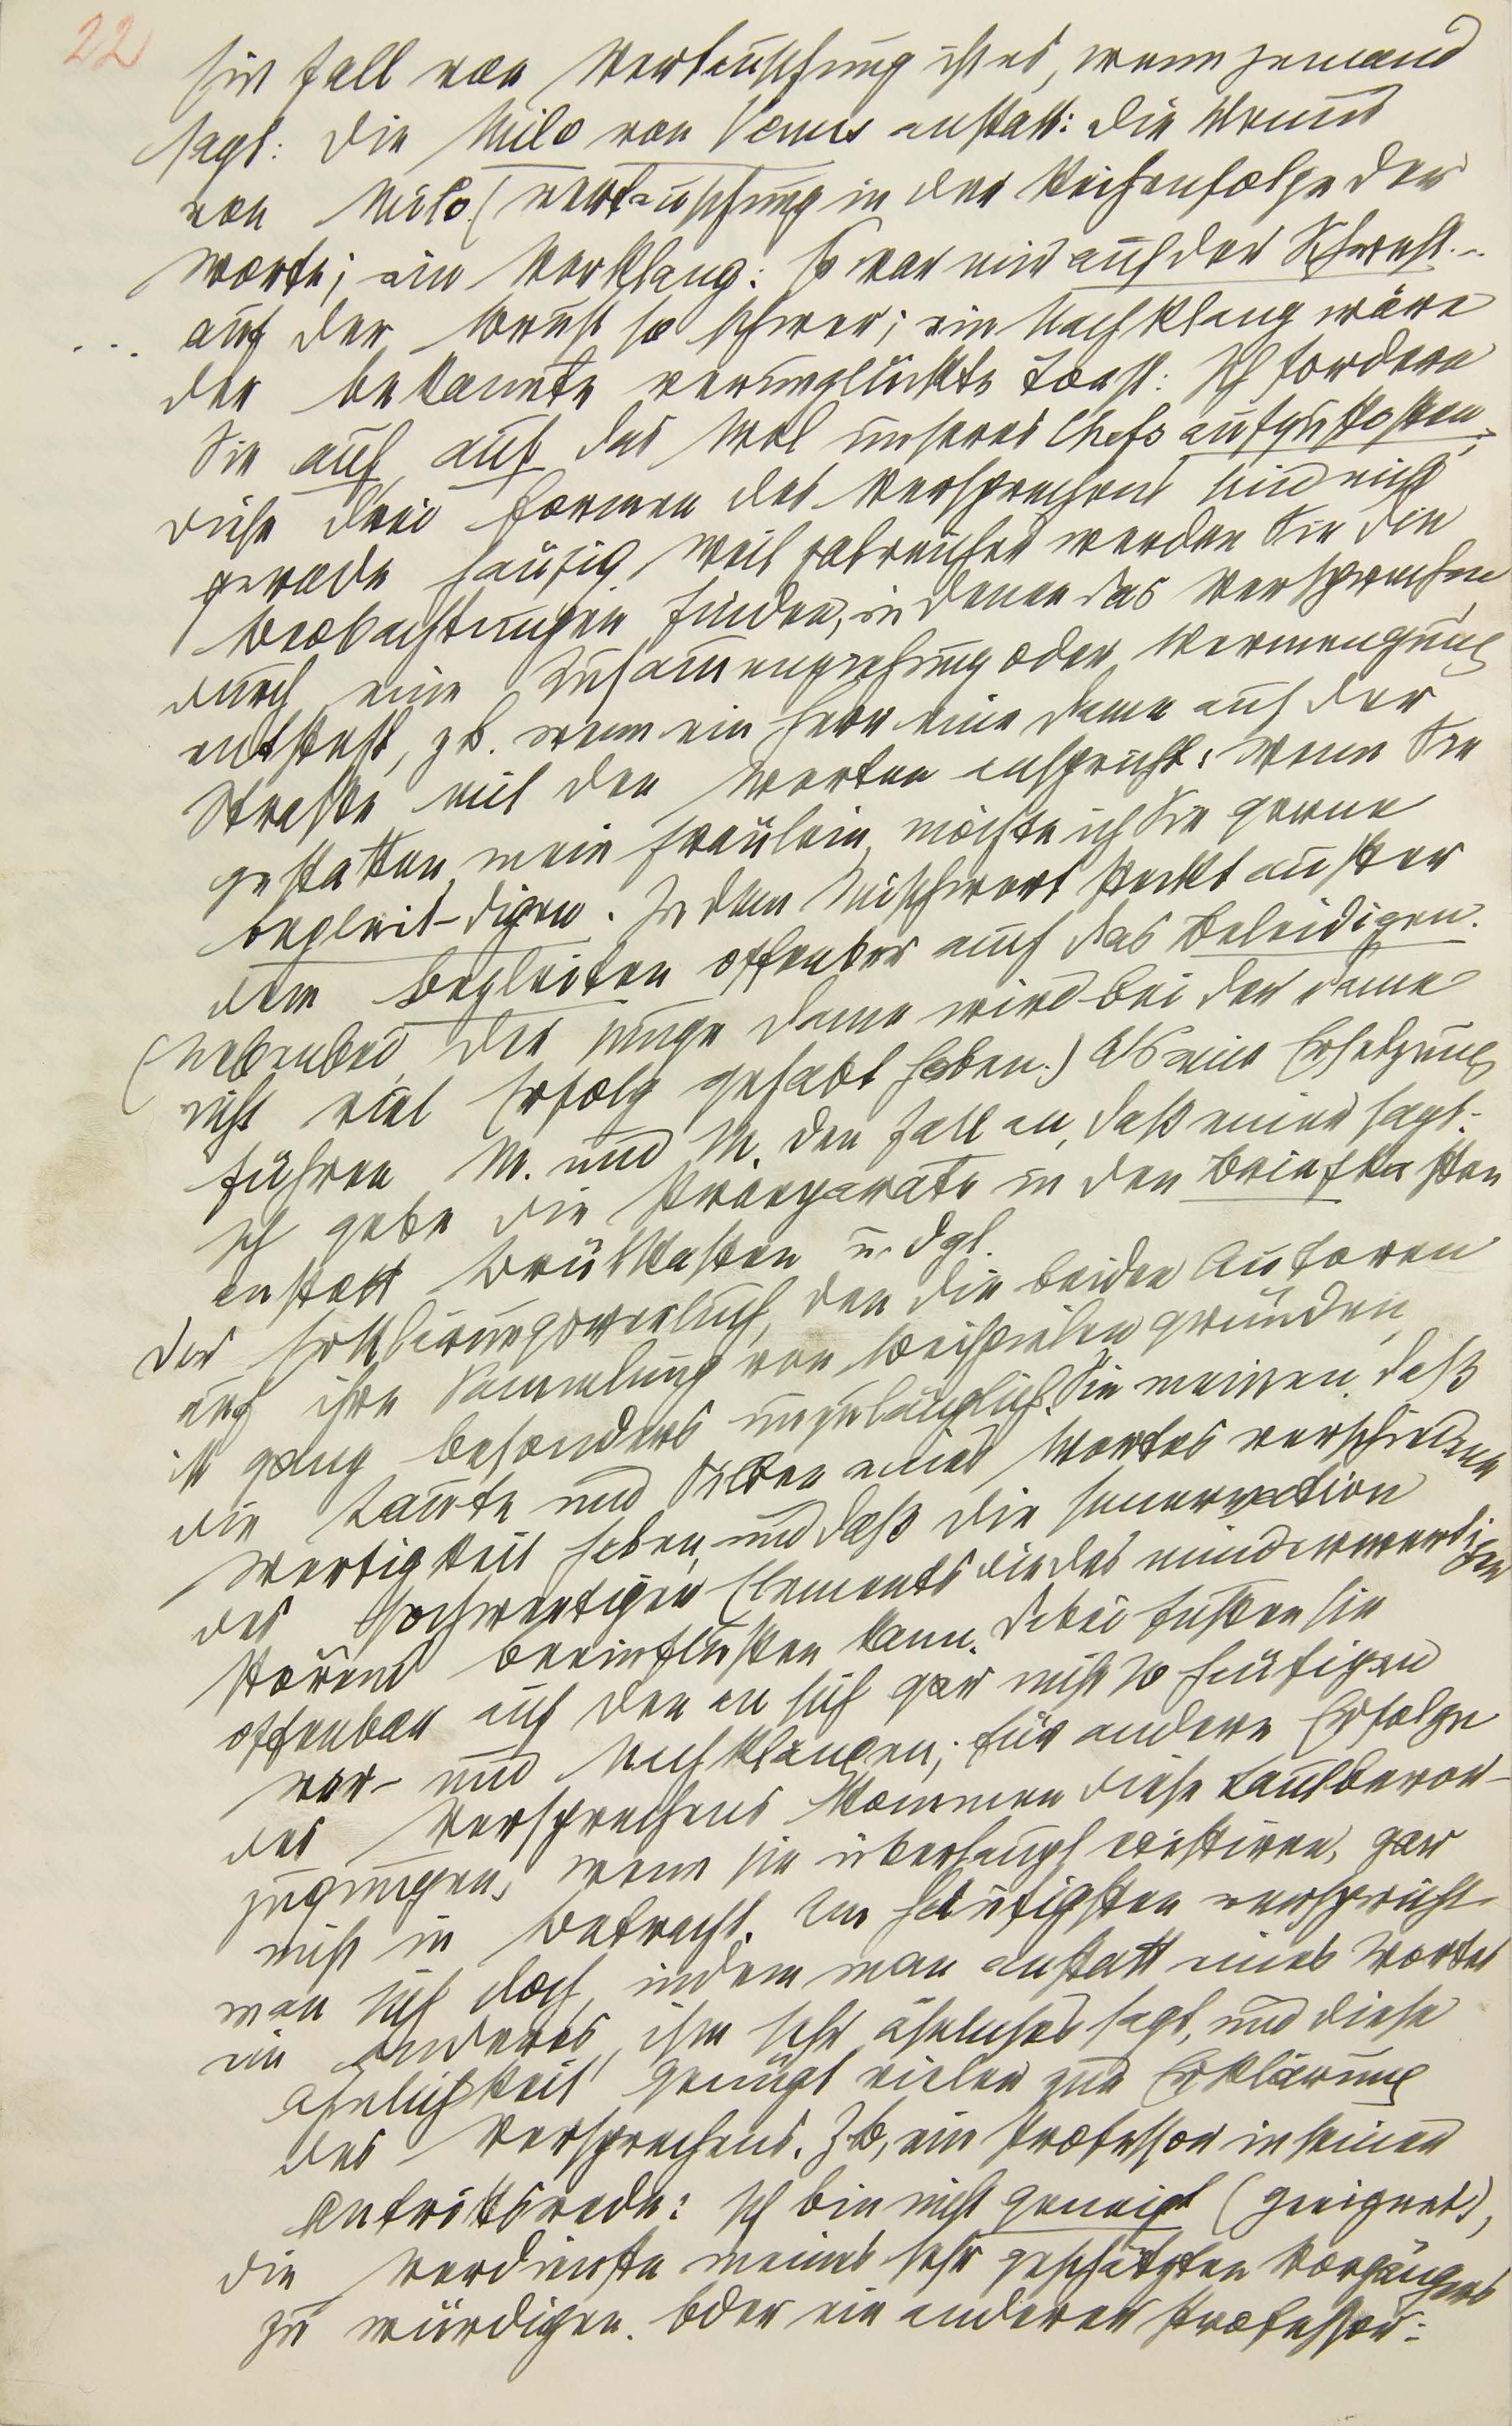 22
Ein Fall von Vertauschung ist es, wenn jemand
sagt: die Milo von Venus anstatt: die Venus
von Milo (Vertauschung in der Reihenfolge der
Worte; ein Vorklang: Es war mir auf der Schwest...
... auf der Brust so schwer; ein Nachklang wäre
der bekannte verunglückte Toast: Ich fordere
Sie auf, auf das Wol unseres Chefs aufzustoßen.
Diese drei Formen des Versprechens sind nicht
gerade häufig. Weit zalreicher werden Sie die
Beobachtungen finden, in denen das Versprechen
durch eine Zusammenziehung oder Vermengung
entsteht, zb. wenn ein Herr eine Dame auf der
Straße mit den Worten anspricht: Wenn Sie
gestatten, mein Fräulein, möchte ich Sie gerne
begleit-digen. In dem Mischwort steckt außer
dem Begleiten offenbar auch das Beleidigen.
(Nebenbei, der junge Mann wird bei der Dame
nicht viel Erfolg gehabt haben.) Als eine Ersetzung
führen M. und M. den Fall an, daß einer sagt:
Ich gebe die Präparate in den Briefkasten
anstatt Brütkasten u. dgl.
Der Erklärungsversuch, den die beiden Autoren
auf ihre Sammlung von Beispielen gründen,
ist ganz besonders unzulänglich. Sie meinen, daß
die Laute und Silben eines Wortes verschiedene
Wertigkeit haben, und daß die Innervation
des hochwertigen Elements die des minderwertigen
störend beeinflußen kann. Dabei fußen sie
offenbar auf den an sich gar nicht so häufigen
Vor- und Nachklängen; für andere Erfolge
des Versprechens kommen diese Lautbevor-
zugungen, wenn sie überhaupt existiren, gar
nicht in Betracht. Am häufigsten verspricht
man sich doch, indem man anstatt eines Wortes
ein anderes, ihm sehr ähnliches sagt, und diese
Ähnlichkeit genügt vielen zur Erklärung
des Versprechens. Zb, ein Professor in seiner
Antrittsrede: Ich bin nicht geneigt (geeignet),
die Verdienste meines sehr geschätzten Vorgängers
zu würdigen. Oder ein anderer Professor: